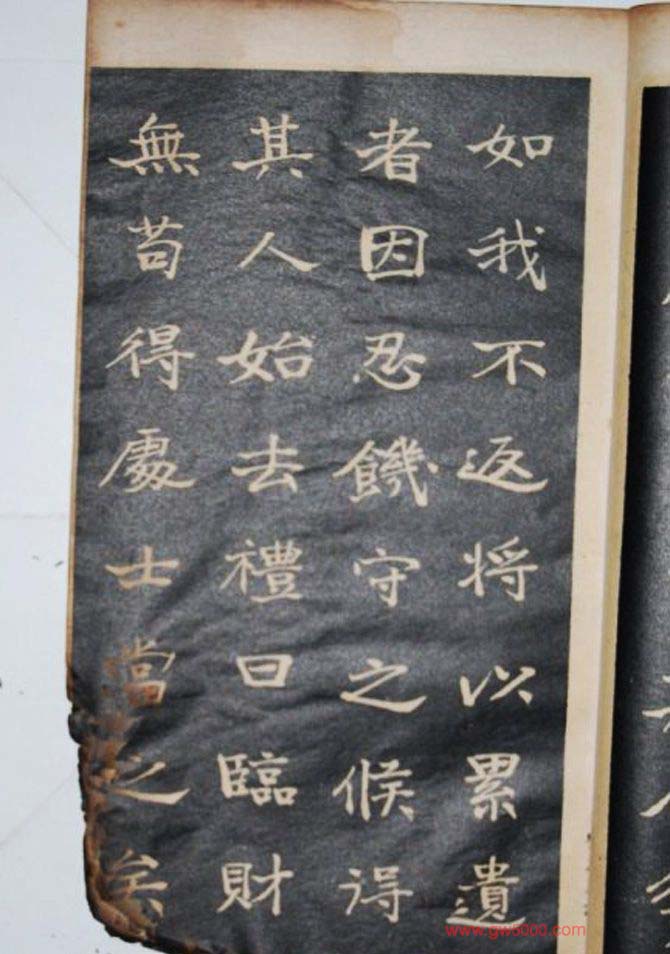 如我不返将以累遺
者因忍饑守之候得
其人始去禮曰臨財
無苟得處士當之矣
www.gw5000.com